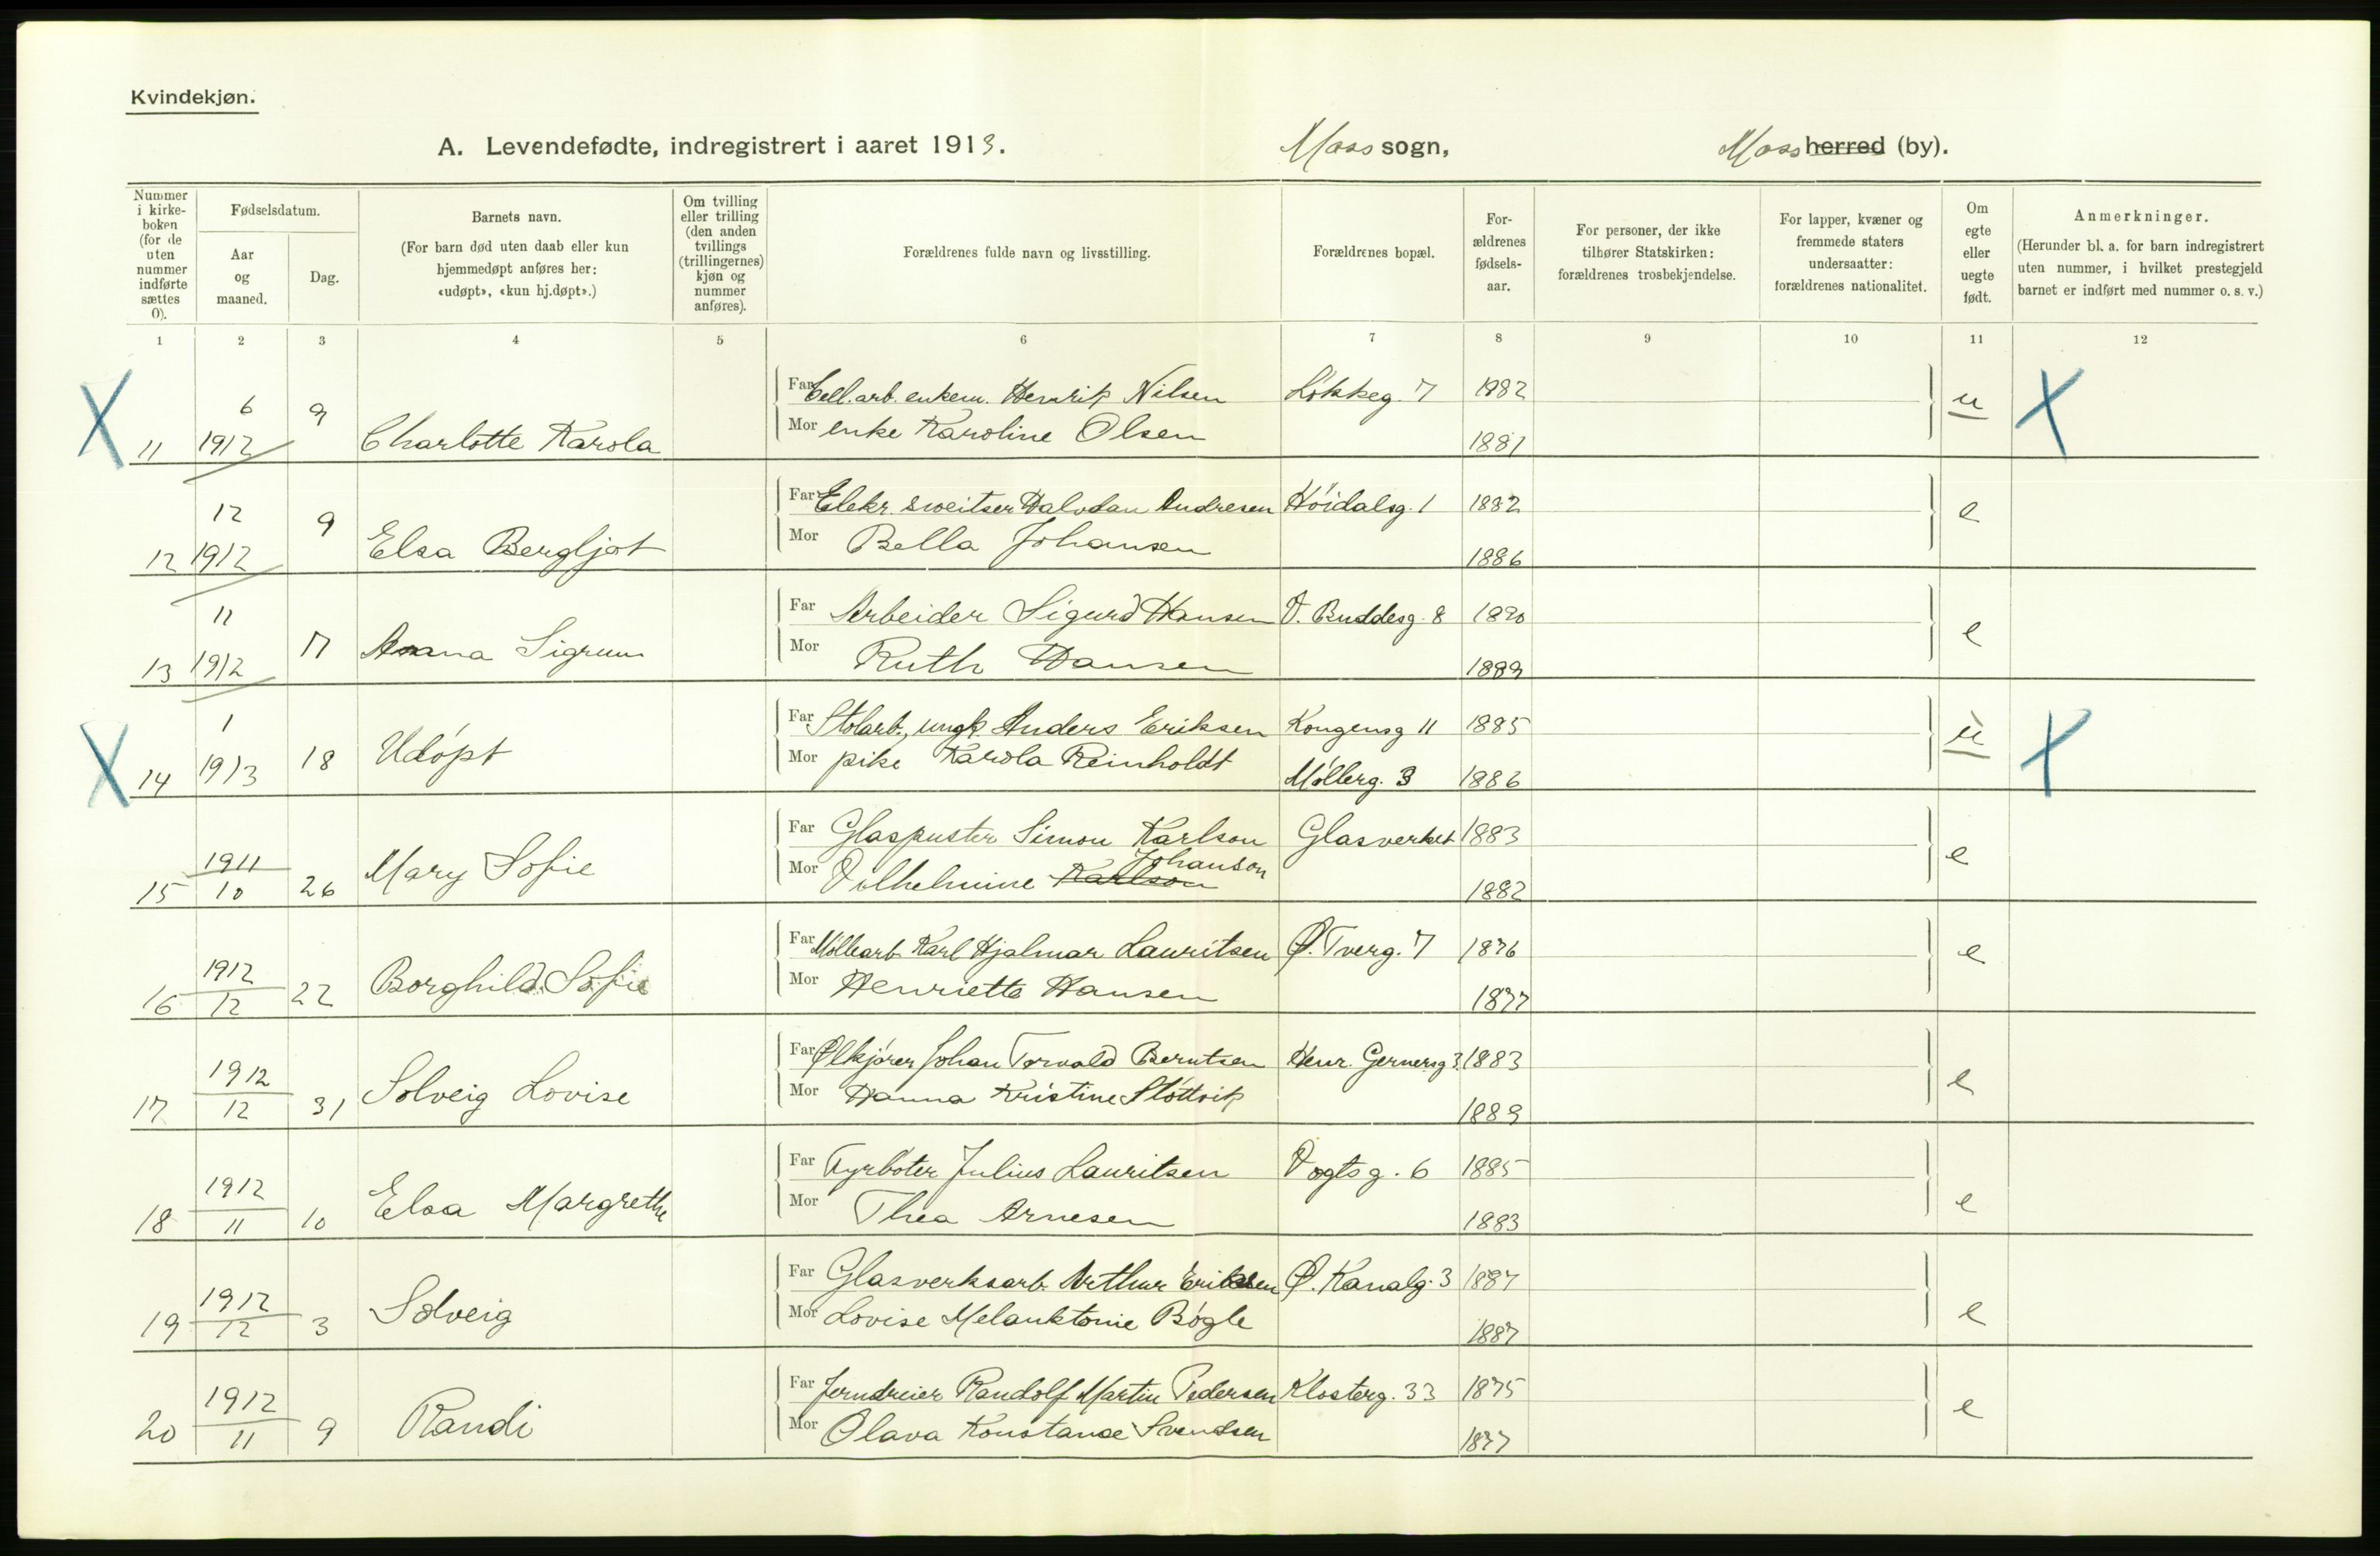 Kvindekjøn.
A. Levendefødte, indregistrert i aaret 1913.
Moss sogn,
Moss herred (by).
Nummer i kirke-boken (for de uten nummer indførte sættes 0).
Fødselsdatum.
Aar og maaned.
Dag.
Barnets navn.
(For barn død uten daab eller kun hjemmedøpt anføres her: «udøpt», «kun hj.døpt».)
Om tvilling eller trilling (den anden tvillings (trillingernes) kjøn og nummer anføres).
Forældrenes fulde navn og livsstilling.
Forældrenes bopæl.
For-ældrenes fødsels-aar.
For personer, der ikke tilhører Statskirken: forældrenes trosbekjendelse.
For lapper, kvæner og fremmede staters undersaatter: forældrenes nationalitet.
Om egte eller uegte født.
Anmerkninger.
(Herunder bl. a. for barn indregistrert uten nummer, i hvilket prestegjeld barnet er indført med nummer o. s. v.)
1 2 3 4 5 6 7 8 9 10 11 12
Far Cell.arb. enkem. Henrik Nilsen Løkkeg. 7 1882
6 9 u
11 1912 Charlotte Karola Mor enke Karoline Olsen 1881
Far Elekr. sweitser Halvdan Andresen Høidalsg. 1 1882
12 9 e
12 1912 Elsa Bergljot Mor Bella Johansen 1886
Far Arbeider Sigurd Hansen V. Buddesg. 8 1890
11 17 e
13 1912 Anna Sigrun Mor Ruth Hansen 1889
Far Stolarb., ungk. Anders Eriksen Kongensg 11 1885
1 18 Udøpt u
14 1913 Mor pike Karola Reinholdt Møllerg. 3 1886
Far Glaspuster Simon Karlson Glasverket 1883
1911 Mary Sofie Johanson e
15 10 26 Mor Vilhelmine Karlson 1882
Far Møllearb. Karl Hjalmar Lauritsen Ø. Tverg. 7 1876
1912 Borghild Sofie e
16 12 22 Mor Henriette Hansen 1877
Far Ølkjører Johan Torvald Berntsen Henr. Gernersg 3. 1883
1912 Solveig Lovise e
17 12 31 Mor Hanna Kristine Støttvik 1889
Far Fyrbøter Julius Lauritsen Vogtsg. 6 1885
1912 Elsa Margrethe e
18 11 10 Mor Thea Arnesen 1883
Far Glasverksarb. Arthur Eriksen Ø. Kanalg. 3 1887
1912 Solveig e
19 12 3 Mor Lovise Melanktonie Bøgle 1887
Far Jerndreier Randolf Martin Pedersen Klosterg. 33 1875
1912 Randi e
20 11 9 Mor Olava Konstance Svendsen 1877